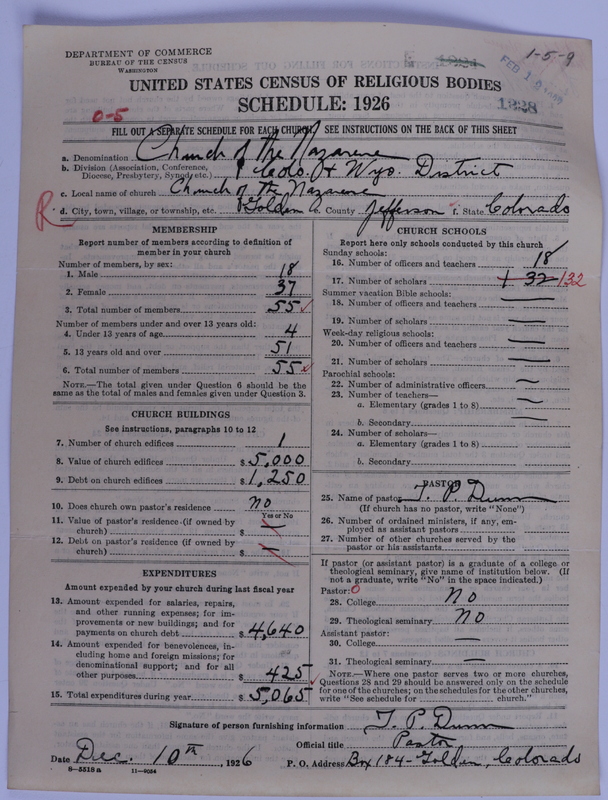 DEPARTMENT OF COMMERCE
BUREAU OF THE CENSUS
WASHINGTON
1-5-9
UNITED STATES CENSUS OF RELIGIOUS BODIES
SCHEDULE: 1926
0-5
FILL OUT A SEPARATE SCHEDULE FOR EACH CHURCH. SEE INSTRUCTIONS ON THE BACK OF THIS SHEET
a. Denomination Church of the Nazarene
b. Division (Association, Conference, Diocese, Presbytery, Synod, etc.) Colo. & Wyo. District
c. Local name of church Church of the Nazarene
R d. City, town, village, or township, etc. Golden e. County Jefferson f. State Colorado
MEMBERSHIP
Report number of members according to definition of member in your church
Number of members, by sex:
1. Male 18
2. Female 37
3. Total number of members 55
Number of members under and over 13 years old:
4. Under 13 years of age 4
5. 13 years old and over 51
6. Total number of members 55
NOTE.—The total given under Question 6 should be the same as the total of males and females given under Question 3.
CHURCH BUILDINGS
See instructions, paragraphs 10 to 12
7. Number of church edifices 1
8. Value of church edifices $ 5,000
9. Debt on church edifices $ 1,250
10. Does church own pastor's residence no
Yes or No
11. Value of pastor's residence (if owned by church) $ —
12. Debt on pastor's residence (if owned by church) $ —
EXPENDITURES
Amount expended by your church during last fiscal year
13. Amount expended for salaries, repairs, and other running expenses; for improvements or new buildings; and for payments on church debt $ 4,640
14. Amount expended for benevolences, including home and foreign missions; for denominational support; and for all other purposes $ 425
15. Total expenditures during year $ 5,065
CHURCH SCHOOLS
Report here only schools conducted by this church
Sunday schools:
16. Number of officers and teachers 18
17. Number of scholars 132 132
Summer vacation Bible schools:
18. Number of officers and teachers —
19. Number of scholars —
Week-day religious schools:
20. Number of officers and teachers —
21. Number of scholars —
Parochial schools:
22. Number of administrative officers —
23. Number of teachers—
a. Elementary (grades 1 to 8) —
b. Secondary —
24. Number of scholars—
a. Elementary (grades 1 to 8)
b. Secondary
PASTOR
25. Name of pastor T. P. Dunn
(If church has no pastor, write "None")
26. Number of ordained ministers, if any, employed as assistant pastors
27. Number of other churches served by the pastor or his assistants
If pastor (or assistant pastor) is a graduate of a college or theological seminary, give name of institution below. (If not a graduate, write "No" in the space indicated.)
Pastor: 0
28. College no
29. Theological seminary no
Assistant pastor:
30. College —
31. Theological seminary —
NOTE.—Where one pastor serves two or more churches, Questions 28 and 29 should be answered only on the schedule for one of the churches; on the schedules for the other churches, write "See schedule for church."
Signature of person furnishing information T. P. Dunn
Official title Pastor
Date Dec. 10th, 1926 P. O. Address Box 184 - Golden, Colorado
8—5518 a 11—9054